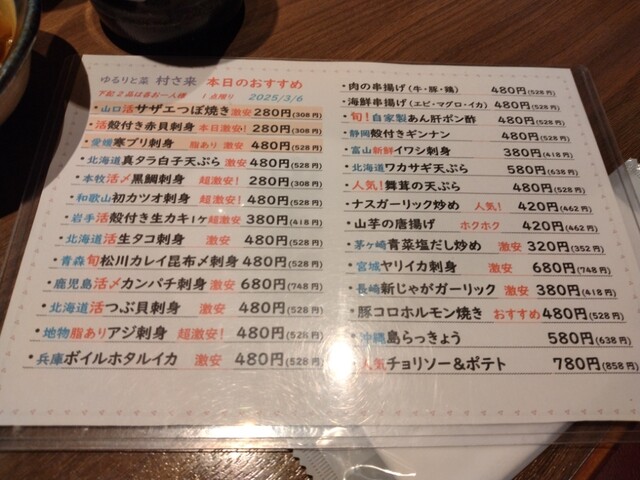 ゆるりと菜 村さ来 本日のおすすめ
下記2品は各お一人様 1点限り 2025/3/6
・山口活サザエつぼ焼き激安280円(308円)
・活殻付き赤貝刺身 本日激安! 280円(308円)
・愛媛寒ブリ刺身 脂あり 激安 480円(528円)
・北海道真タラ白子天ぷら 激安 480円(528円)
・本牧活〆黒鯛刺身 超激安! 280円(308円)
・和歌山初カツオ刺身 超激安! 480円(528円)
・岩手活殻付き生カキ1ヶ超激安 380円(418円)
・北海道活生タコ刺身 激安 480円(528円)
・青森旬松川カレイ昆布〆刺身 480円(528円)
・鹿児島活〆カンパチ刺身 激安 680円(748円)
・北海道活つぶ貝刺身 激安 480円(528円)
・地物脂ありアジ刺身 超激安! 480円(528円)
・兵庫ボイルホタルイカ 激安 480円(528円)
・肉の串揚げ(牛・豚・鶏) 480円(528円)
・海鮮串揚げ(エビ・マグロ・イカ) 480円(528円)
・旬!自家製あん肝ポン酢 480円(528円)
・静岡殻付きギンナン 480円(528円)
・富山新鮮イワシ刺身 380円(418円)
・北海道ワカサギ天ぷら 580円(638円)
・人気!舞茸の天ぷら 480円(528円)
・ナスガーリック炒め 人気! 420円(462円)
・山芋の唐揚げ ホクホク 420円(462円)
・茅ヶ崎青菜塩だし炒め 激安 320円(352円)
・宮城ヤリイカ刺身 激安 680円(748円)
・長崎新じゃがガーリック 激安 380円(418円)
・豚コロホルモン焼き おすすめ480円(528円)
・沖縄島らっきょう 580円(638円)
・人気チョリソー&ポテト 780円(858円)